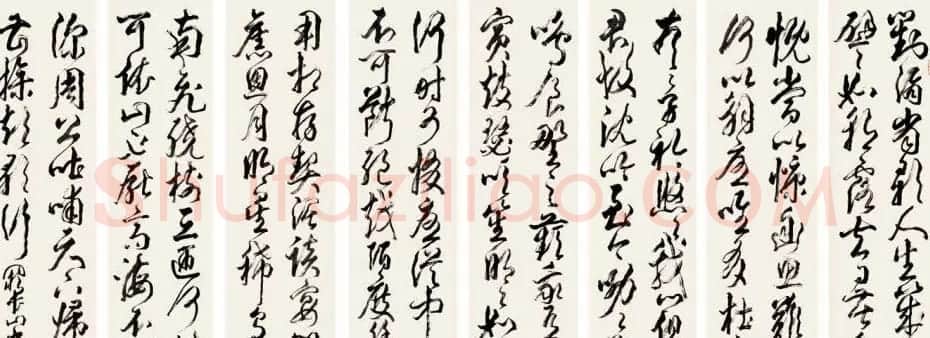 對酒當歌人生幾
譬如朝露去日苦
慨當以慷幽思難
何以解憂唯有杜
青青子衿悠悠我心但
君故沈吟至今呦呦
鳴食野之蘋我有
賓鼓瑟吹笙明明如
何時可掇憂從中
不可斷絕越陌度
用相存契闊談宴
舊恩月明星稀烏
南飛繞樹三匝何
可依山不厭高海不
深周公吐哺天下歸
操短歌行
Shufaziliao.com